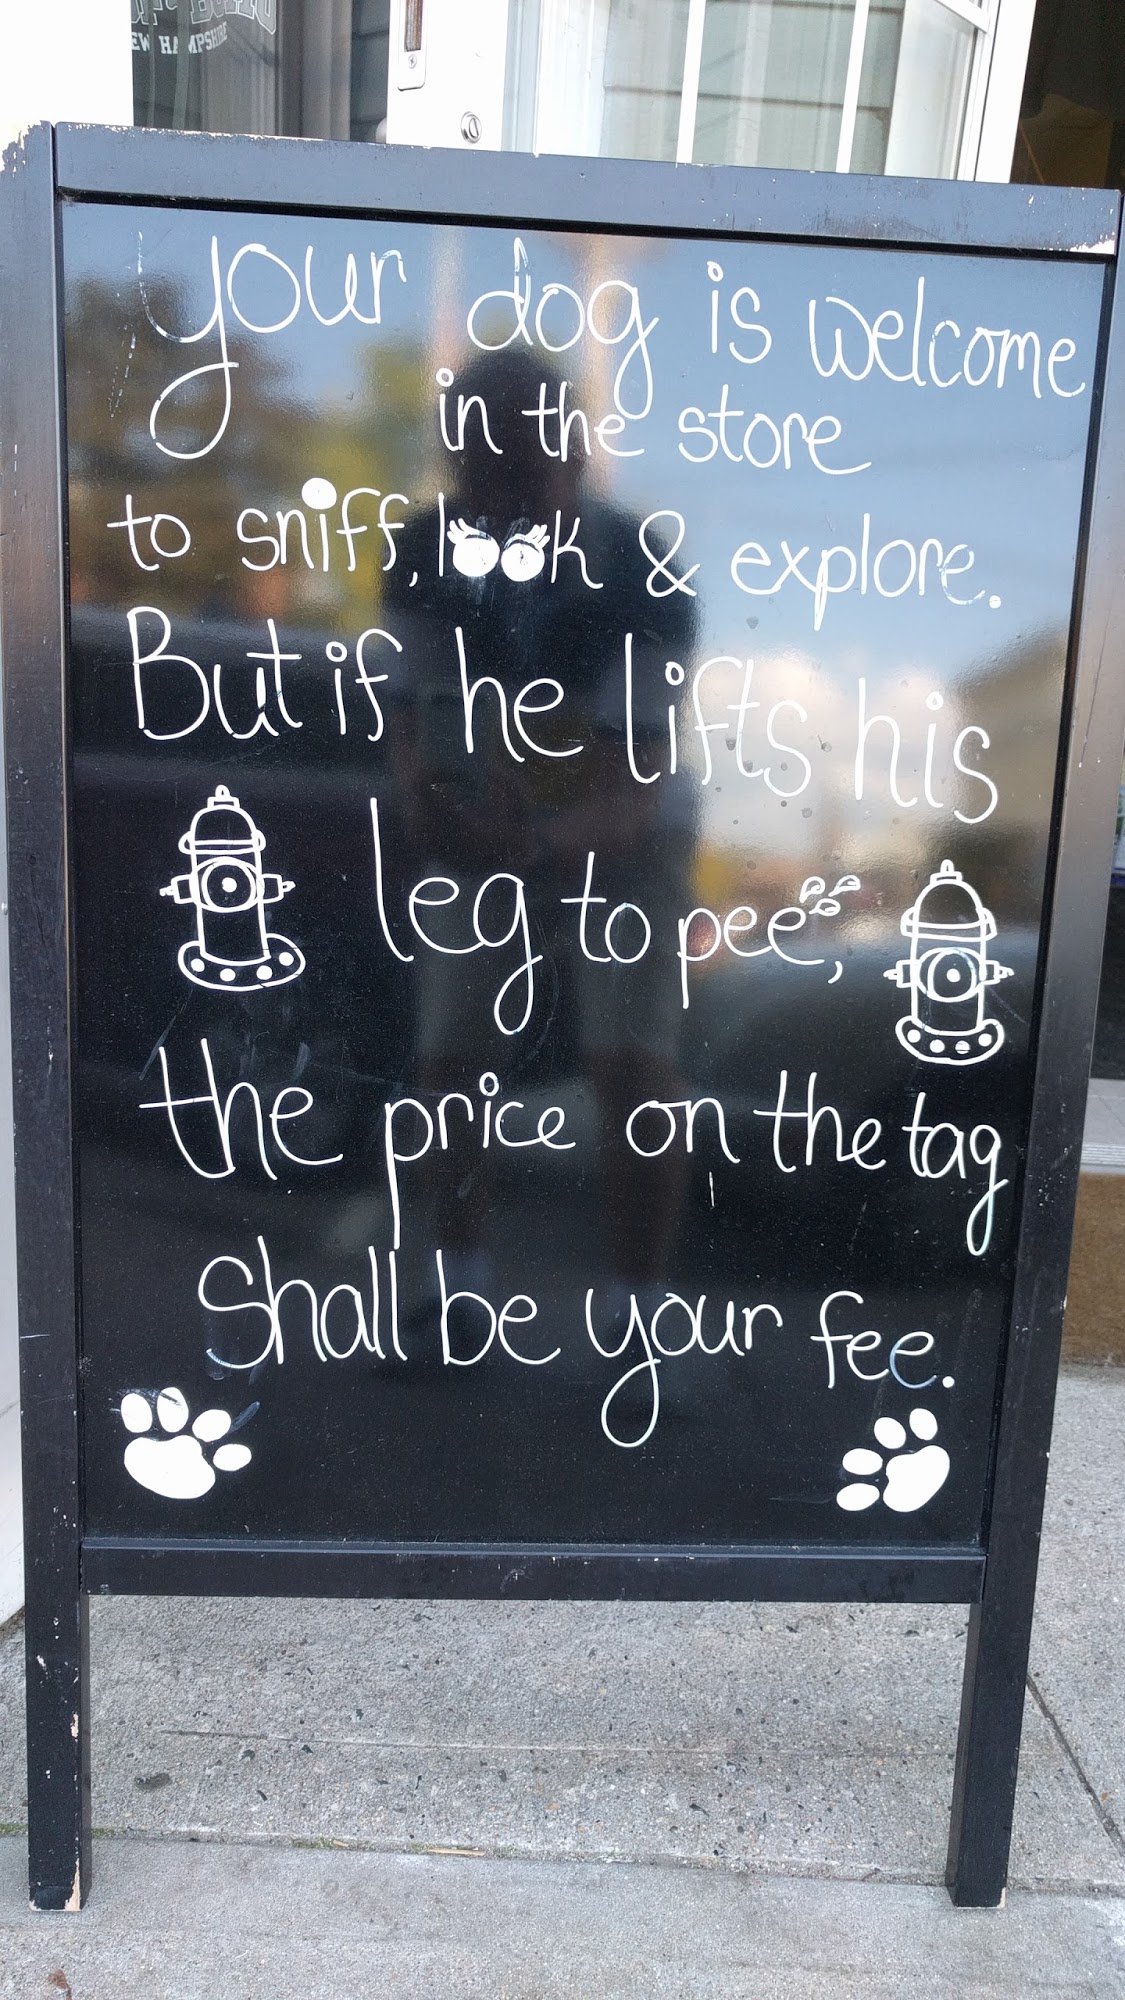 EW HAMPSHIRE
your dog is welcome
in the store
to sniff, look & explore.
But if he lifts his
leg to pee,
the price on the tag
Shall be your fee.